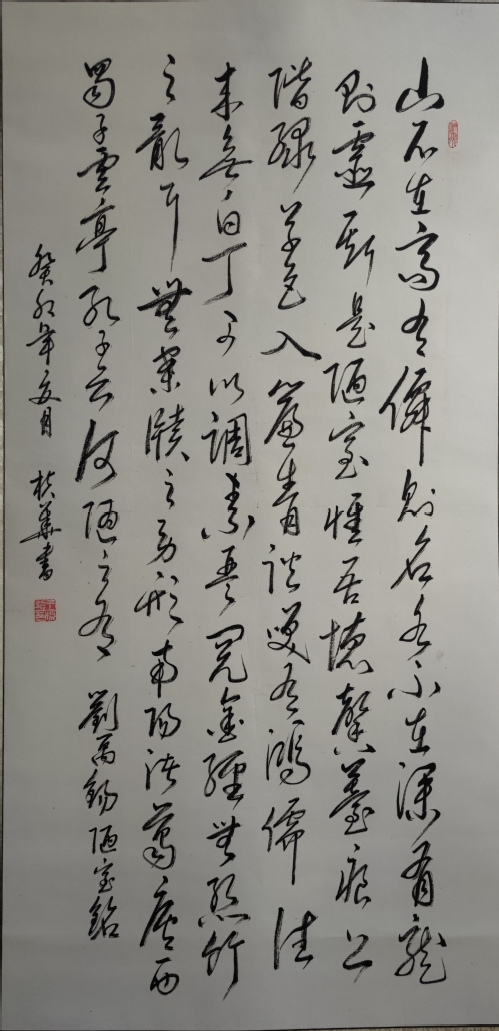 山不在高有僊則名水不在深有龍
則靈斯是陋室惟吾德馨薹痕上
階緑草色入簾青談笑有鴻儒往
來無白丁可以調素琴閱金經無絲竹
之亂耳無案牘之勞形南陽諸葛廬西
蜀子雲亭孔子云何陋之有 劉禹錫陋室銘
癸卯年夏月 華書